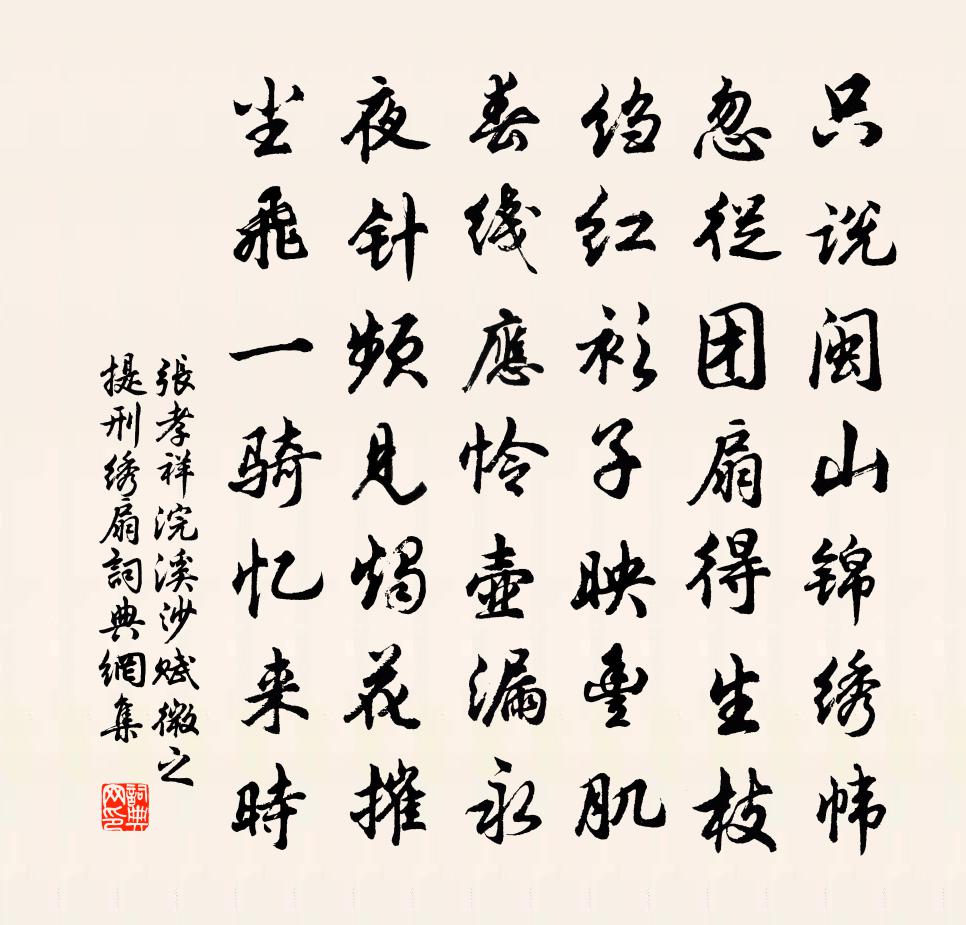 只说闽山锦绣帏
忽從团扇得生枝
绉红衫子映豊肌
春线應怜壺漏永
夜针频见燭花摧
尘飛一骑忆来時
張孝祥浣溪沙赋微之
提刑绣扇詞典網集
詞典网印